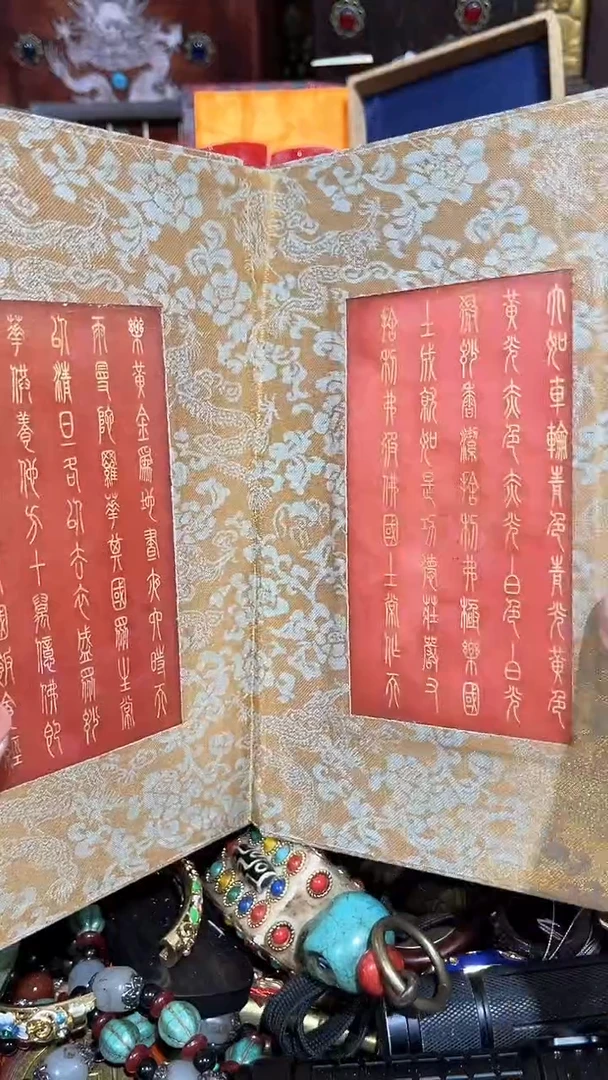 大如車輪青色青光黃色
黃光赤色赤光白色白光
微妙香潔捨利弗極樂國
土成就如是功德莊嚴又
捨利弗彼佛國土常作天
樂黃金爲地晝夜六時天
雨曼陀羅華其國眾生常
以清旦各以衣衣盛眾妙
華供養他方十萬億佛即
國飯食經